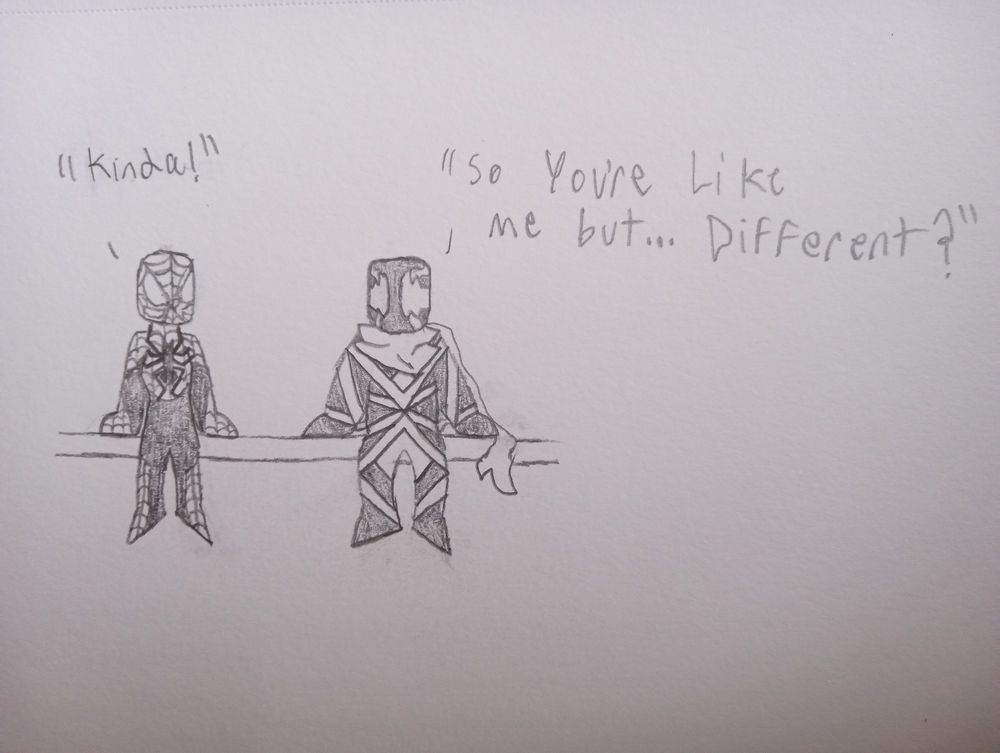 "Kinda!"
"So You're Like
me but... Different?"